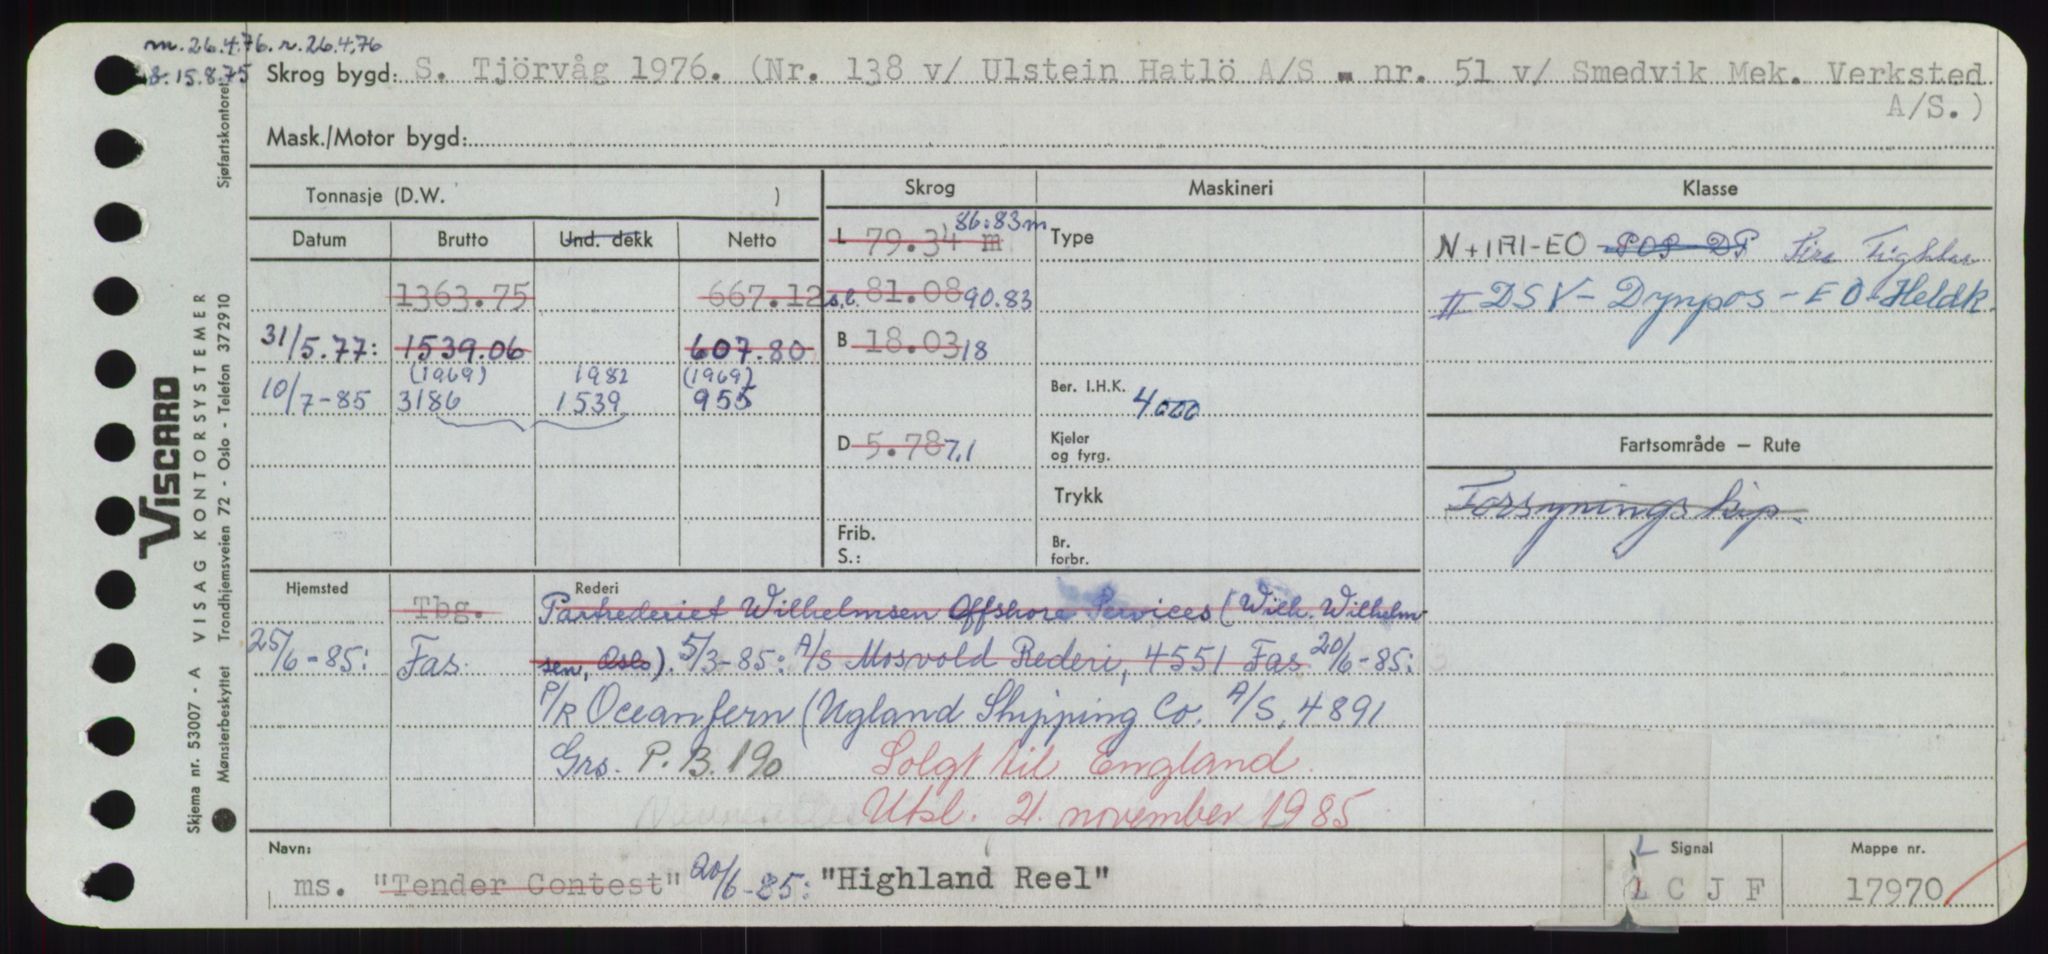 m. 26.4.76. r. 26.4.76
15.8.75
Skrog bygd: S. Tjörvåg 1976. (Nr. 138 v/ Ulstein Hatlö A/S - nr. 51 v/ Smedvik Mek. Verksted
A/S.)
Mask./Motor bygd:
Tonnasje (D.W. )
Skrog Maskineri Klasse
Datum Brutto Und. dekk Netto
L 79.34 m 86.83m Type N+1A1-EO POS DP Fire Fighter
1363.75 667.12 s.l. 81.08 90.83 II DSV - Dynpos - EO-Heldk.
31/5.77: 1539.06 607.80 B 18.03 18
(1969) 1982 (1969)
10/7-85 3186 1539 955 Ber. I.H.K. 4000
D 5.78 7.1 Kjeler og fyrg. Fartsområde — Rute
Trykk Forsyningsskip.
Frib.
S.: Br. forbr.
Hjemsted Rederi
Tbg. Partrederiet Wilhelmsen Offshore Services (Wilh. Wilhelm-
25/6-85: Fas. sen, Oslo). 5/3-85: A/S Mosvold Rederi, 4551 Fas 20/6-85:
P/R Oceanfern (Ugland Shipping Co. A/S, 4891
Grs. P.B. 190 Solgt til England.
Utsl. 21. november 1985
Navn: Signal Mappe nr.
ms. "Tender Contest" 20/6-85: "Highland Reel" L C J F 17970
VISCARD
Skjema nr. 53007 - A VISAG KONTORSYSTEMER
Mønsterbeskyttet Trondhjemsveien 72 - Oslo - Telefon 372910
Sjøfartskontoret